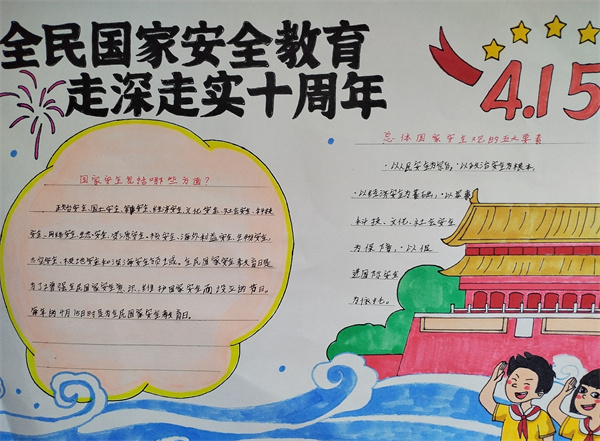 全民国家安全教育
走深走实十周年
4.15
国家安全包括哪些方面?
政治安全、国土安全、军事安全、经济安全、文化安全、社会安全、科技
安全、网络安全、生态安全、资源安全、核安全、海外利益安全、生物安全、
太空安全、极地安全和深海安全等领域。全民国家安全教育日是
为了增强全民国家安全意识,维护国家安全而设立的节日。
每年的4月15日时应为全民国家安全教育日。
总体国家安全观的五大要素
·以人民安全为宗旨,·以政治安全为根本,
·以经济安全为基础,·以军事
科技、文化、社会安全
为保障,·以促
进国际安全
为依托。